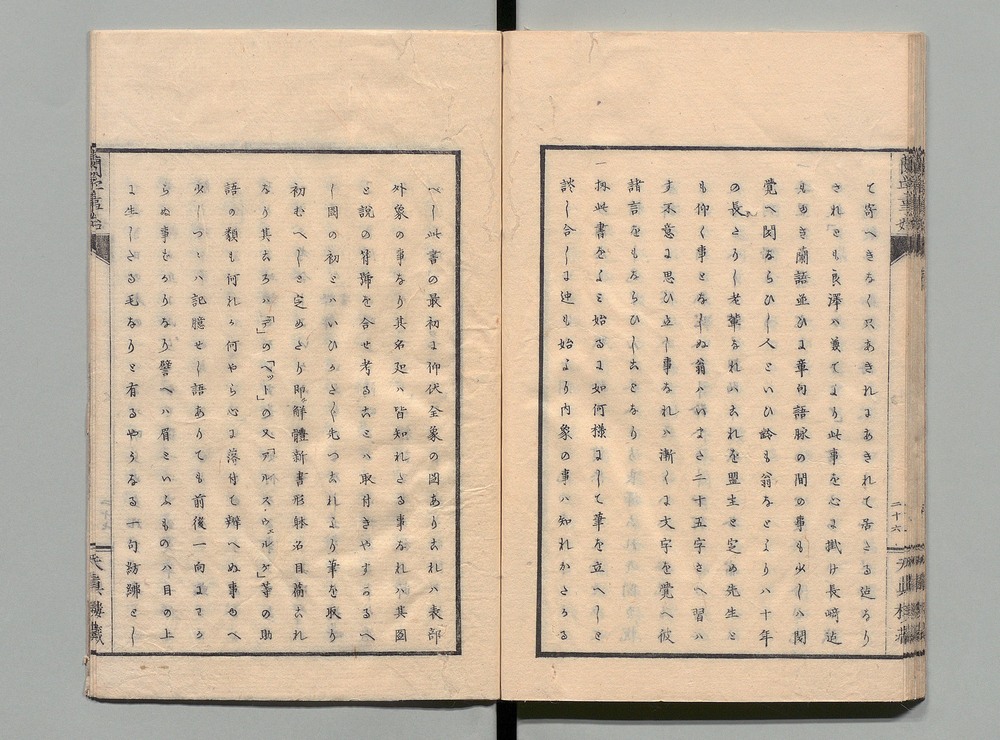 て寄へきなく只あきれにあきれて居たる迄なり
されとも良澤ハ兼てより此事を心に掛け長崎迄
もゆき蘭語並ひに章句語脉の間の事も少しハ聞
覚へ聞ならひし人といひ齢も翁なとよりハ十年
の長たりし老輩なれハこれを盟主と定め先生と
も仰く事となしぬ翁ハいまた二十五字さへ習ハ
す不意に思ひ立し事なれハ漸くに文字を覚へ彼
諸言をもならひしことなり
一扨此書をよミ始るに如何様にして筆を立へしと
談し合しに迚も始より内象の事ハ知れかたかる
へし此書の最初に仰伏全象の図ありこれハ表部
外象の事なり其名処ハ皆知れたる事なれハ其図
と説の符號を合せ考ることハ取付きやすかるへ
し図の初とハいひかたく先つこれより筆を取り
初むへしと定めたり即解體新書形躰名目篇これ
なり其ころハ「デ」の「ヘット」の又「アルス・ウェルケ」等の助
語の類も何れか何やら心に落付て辨へぬ事ゆへ
少しつゝハ記臆せし語ありても前後一向にわか
らぬ事はかりなり譬へハ眉といふものハ目の上
に生したる毛なりと有るやうなる一句彷彿とし
蘭學事始
二十六
天真樓蔵